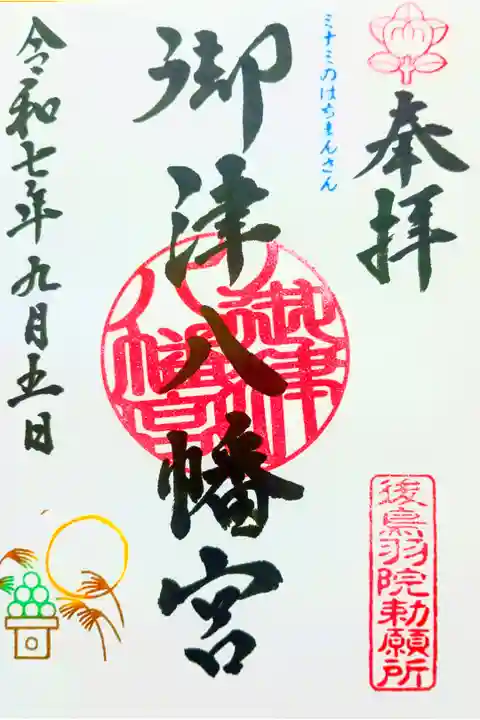 奉拝
後鳥羽院勅願所
ミナミのはちまんさん
御津八幡宮
御津八幡宮
令和七年九月五日